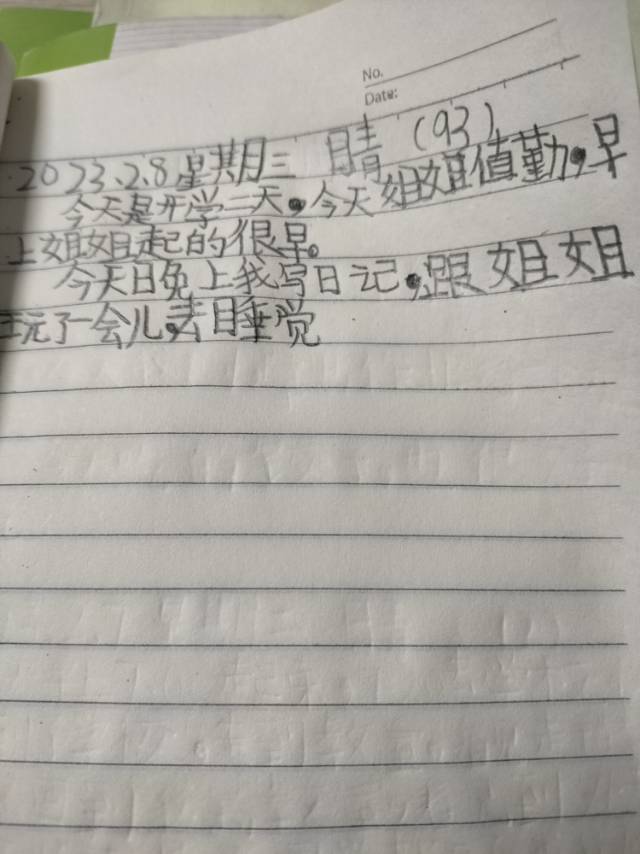 No.
Date:
2023.2.8 星期三 晴 (93)
今天是开学二天。今天姐姐值勤。早
上姐姐起的很早。
今天日免上我写日记。跟姐姐
玩了一会儿去睡觉